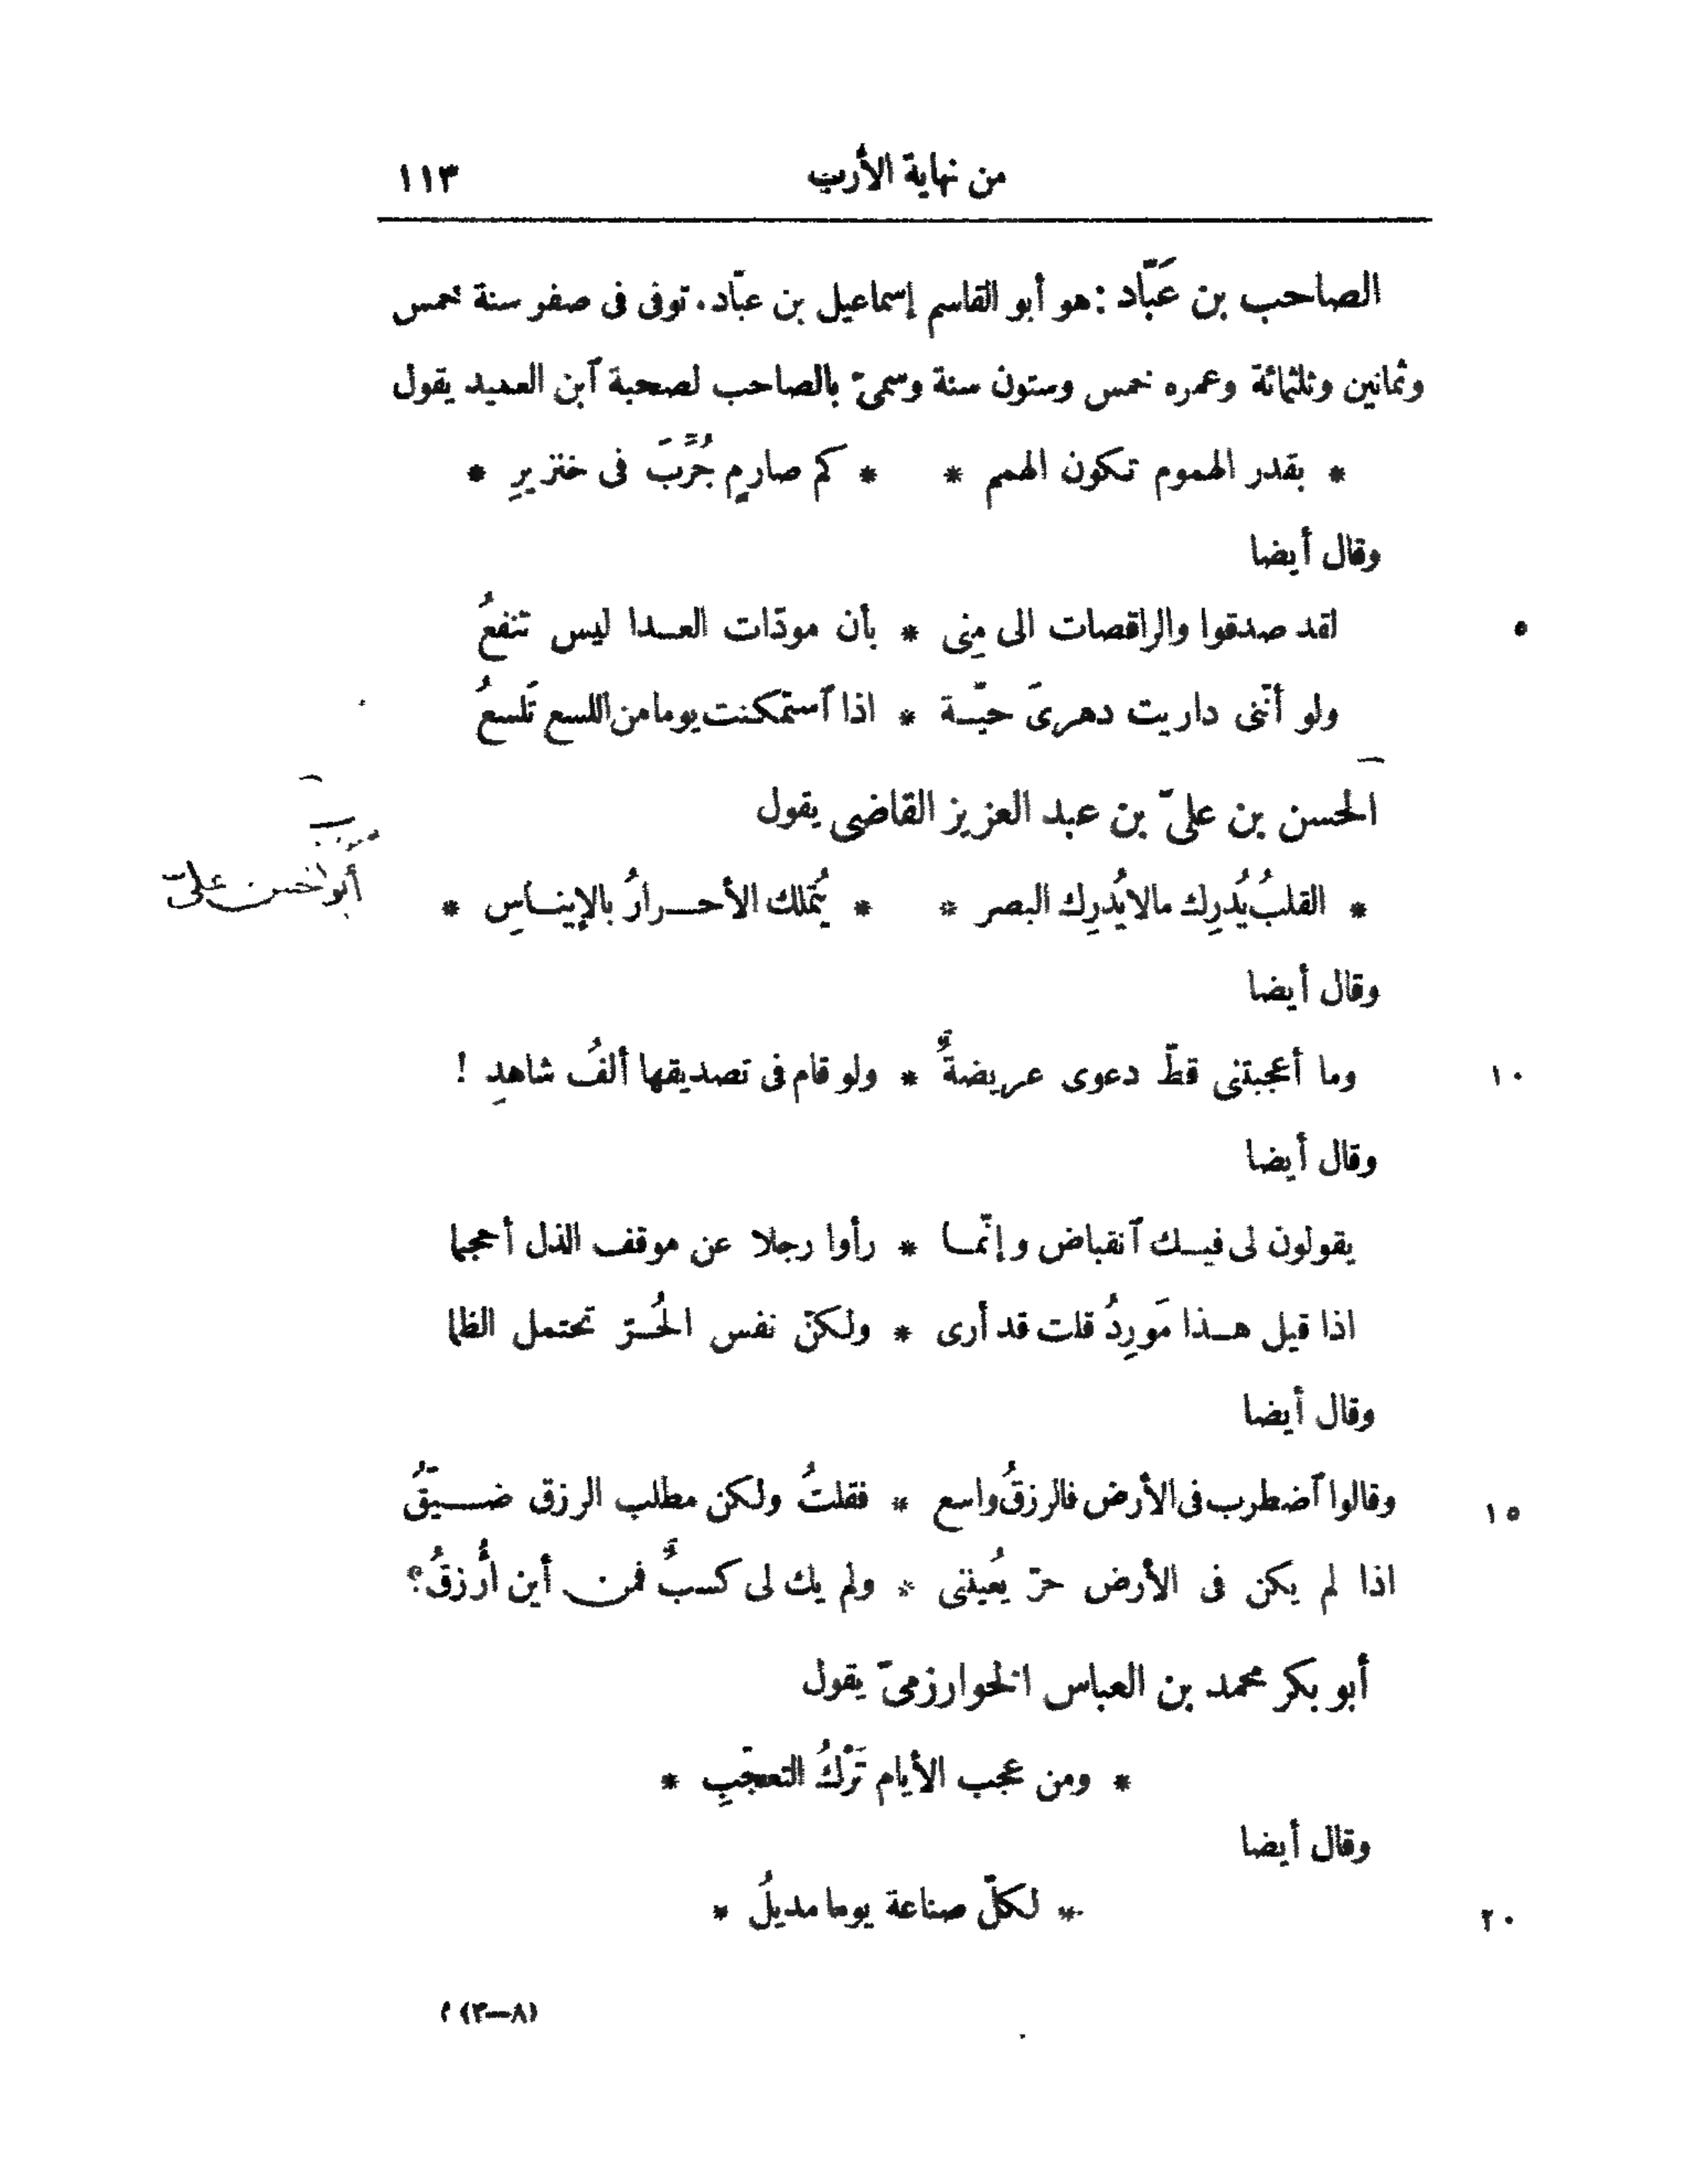 من نهاية الأرب ١١٣
الصاحب بن عَبّاد : هو أبو القاسم إسماعيل بن عبّاد. توفى فى صفر سنة خمس
وثمانين وثلثمائة وعمره خمس وستون سنة وسمىّ بالصاحب لصحبة ٱبن العميد يقول
* بقدر الهموم تكون الهمم * * كم صارمٍ جُرِّبَ فى خنزيرِ *
وقال أيضا
لقد صدقوا والراقصات الى مِنى * بأن مودّات العدا ليس تنفعُ ٥
ولو أنّنى داريت دهرىَ حيّة * اذا ٱستمكنت يوما من اللسع تَلسعُ
الحسن بن علىّ بن عبد العزيز القاضى يقول
أبو الحسن علىّ
* القلبُ يُدرِك مالا يُدرِك البصر * * يُتملك الأحرارُ بالإيناسِ *
وقال أيضا
وما أعجبتنى قطّ دعوى عريضةٌ * ولو قام فى تصديقها ألفُ شاهدِ ! ١٠
وقال أيضا
يقولون لى فيك ٱنقباض وإنّما * رأوا رجلا عن موقف الذل أحجما
اذا قيل هذا مَورِدُ قلت قد أرى * ولكنّ نفس الحُرّ تحتمل الظما
وقال أيضا
وقالوا ٱضطرب فى الأرض فالرزقُ واسع * فقلتُ ولكن مطلب الرزق ضيّقُ ١٥
اذا لم يكن فى الأرض حرّ يُعيننى * ولم يك لى كسبٌ فمن أين أُرزقُ؟
أبو بكر محمد بن العباس الخوارزمىّ يقول
* ومن عجب الأيام تَرْكُ التعجّبِ *
وقال أيضا
* لكلّ صناعة يوما مديلُ * ٢٠
(٨—٣) م